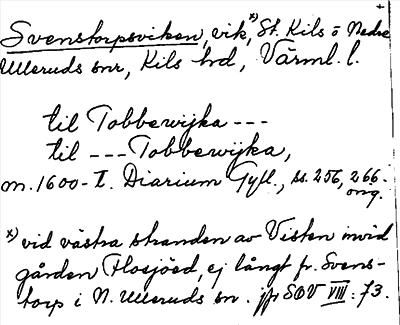 Svenstorpsviken, vik,ˣ⁾ St. Kils o Nedre
Ulleruds snr, Kils hd, Värml. l.
til Tobbewijka ---
til --- Tobbewijka,
m. 1600-t. Diarium Gyll., ss. 256, 266.
orig.
x) vid västra stranden av Visten invid
gården Flosjöed, ej långt fr. Svens-
torp i N. Ulleruds sn. jfr SOV VIII: 73.